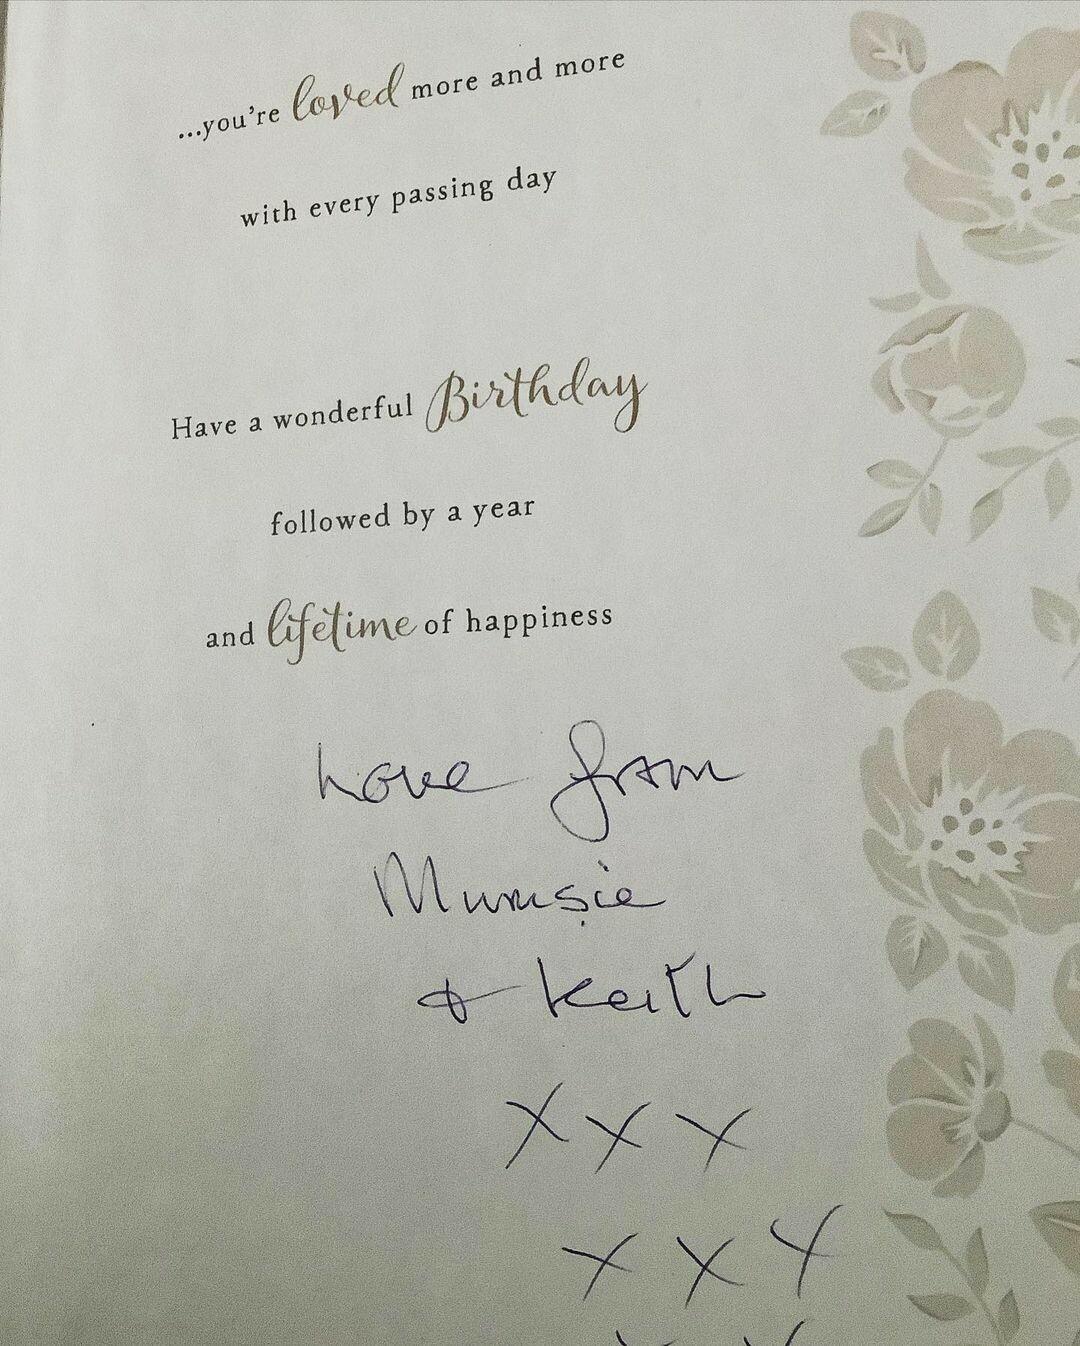 ...you're loved more and more
with every passing day
Have a wonderful Birthday
followed by a year
and lifetime of happiness
Love from
Mumsie
& Keith
X X X
X X X